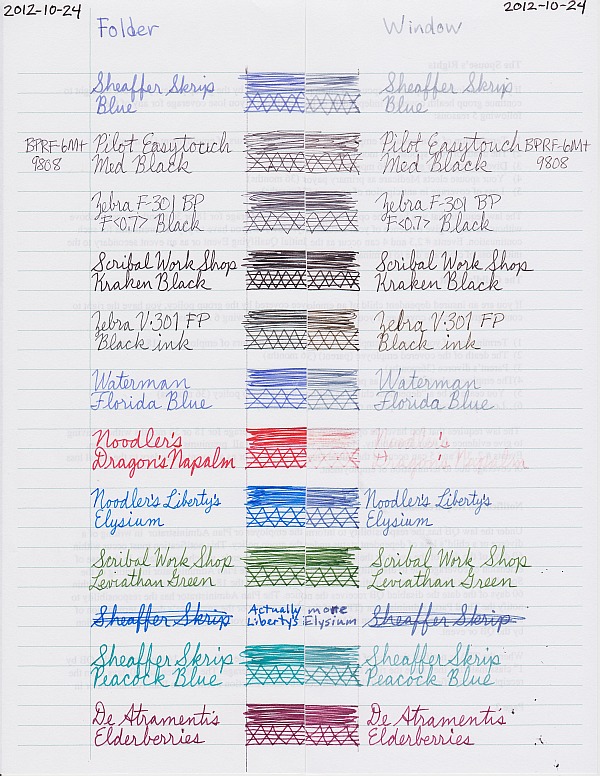 2012-10-24 2012-10-24
Folder Window
Sheaffer Skrip Sheaffer Skrip
Blue Blue
BPRF-6M+ Pilot Easytouch Pilot Easytouch BPRF-6M+
9808 Med Black Med Black 9808
Zebra F-301 BP Zebra F-301 BP
F<0.7> Black F<0.7> Black
Scribal Work Shop Scribal Work Shop
Kraken Black Kraken Black
Zebra V-301 FP Zebra V-301 FP
Black ink Black ink
Waterman Waterman
Florida Blue Florida Blue
Noodler's Noodler's
Dragon's Napalm Dragon's Napalm
Noodler's Liberty's Noodler's Liberty's
Elysium Elysium
Scribal Work Shop Scribal Work Shop
Leviathan Green Leviathan Green
Sheaffer Skrip Actually more Sheaffer Skrip
Liberty's Elysium
Sheaffer Skrip Sheaffer Skrip
Peacock Blue Peacock Blue
De Atramentis De Atramentis
Elderberries Elderberries